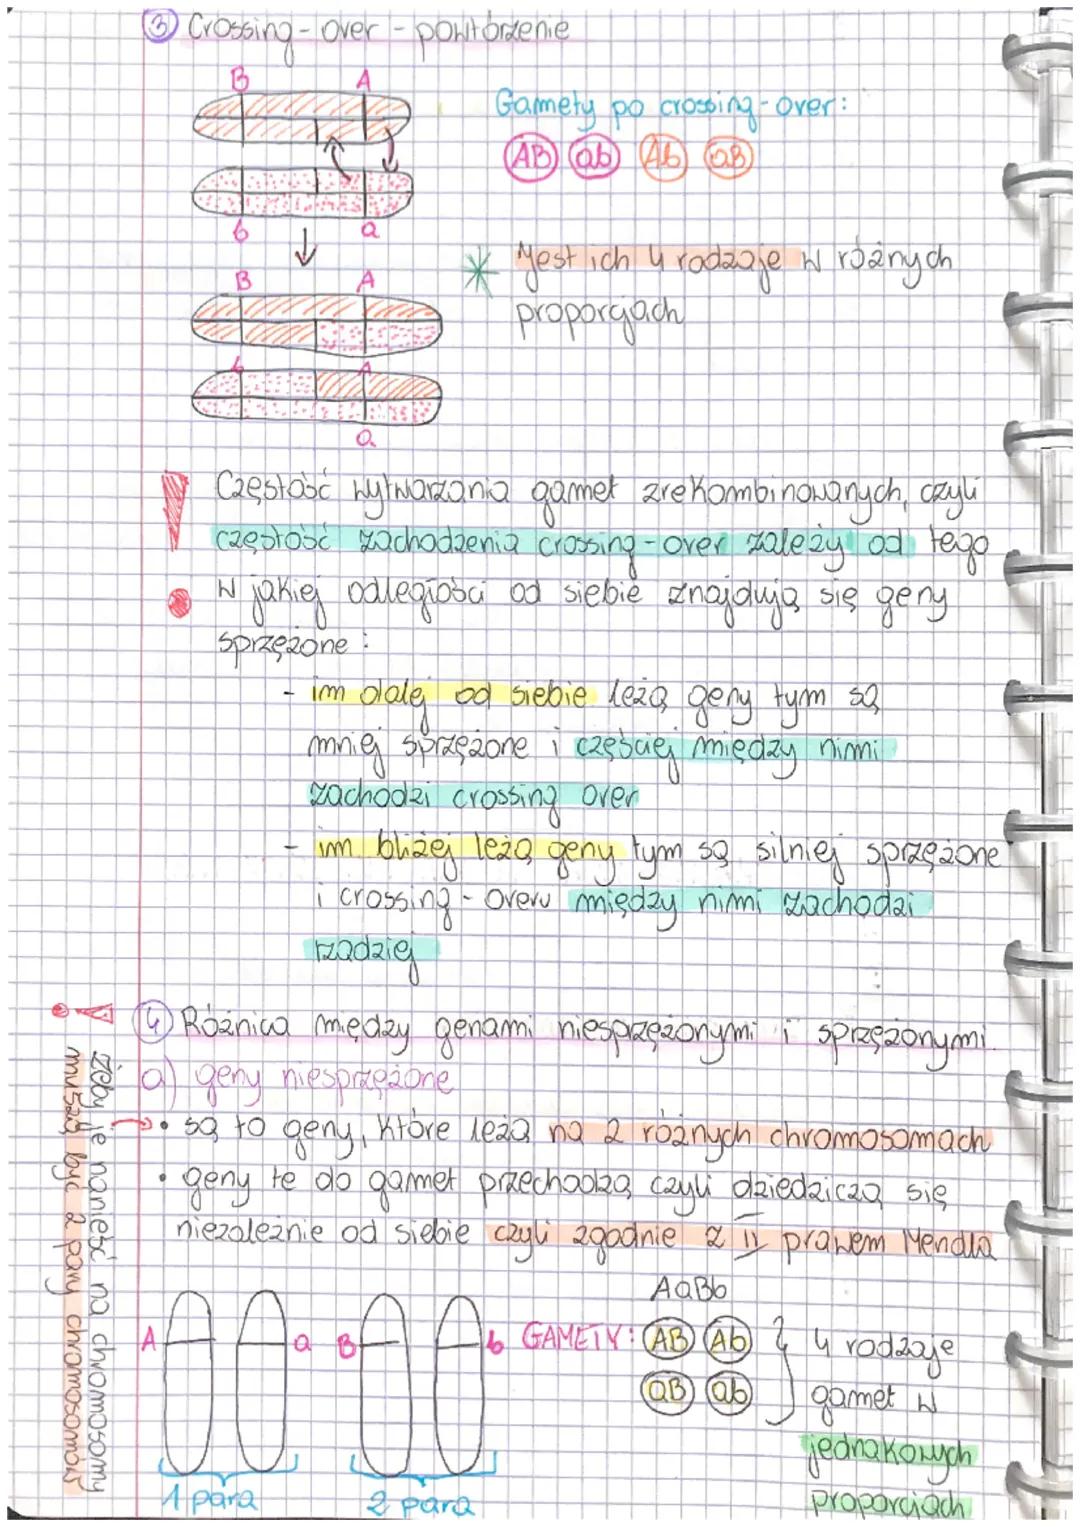 ③ Crossing-over - powtórzenie
B A
Gamety po crossing-over:
AB ab Ab aB
b a
* Jest ich 4 rodzaje w różnych
proporcjach
B A
b A
a
Częstość wytwarzania gamet zrekombinowanych, czyli
częstość zachodzenia crossing-over zależy od tego
w jakiej odległości od siebie znajdują się geny
sprzężone:
- im dalej od siebie leżą geny tym są
mniej sprzężone i częściej między nimi
zachodzi crossing over
- im bliżej leżą geny tym są silniej sprzężone
i crossing-overu między nimi zachodzi
rzadziej
④ Różnica między genami niesprzężonymi i sprzężonymi.
a) geny niesprzężone
• są to geny, które leżą na 2 różnych chromosomach
• geny te do gamet przechodzą czyli dziedziczą się
niezależnie od siebie czyli zgodnie z II prawem Mendla
żeby je nanieść na chromosomy
muszą być 2 pary chromosomów
AaBb
A a B b GAMETY: AB Ab } 4 rodzaje
aB ab gamet w
jednakowych
1 para 2 para proporcjach